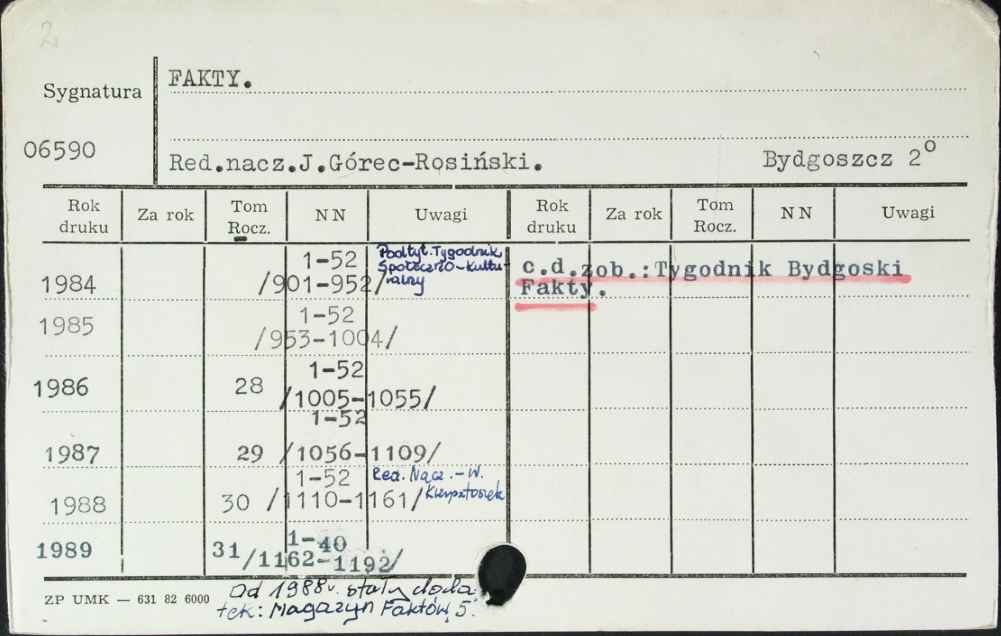 2
Sygnatura
FAKTY.
06590
Red.nacz.J.Górec-Rosiński. Bydgoszcz 2°
Rok druku Za rok Tom Rocz. NN Uwagi Rok druku Za rok Tom Rocz. NN Uwagi
1984 1-52 /901-952/ Podtyt. Tygodnik Społeczno-Kulturalny
c.d.zob.:Tygodnik Bydgoski
Fakty.
1985 1-52 /953-1004/
1986 28 1-52 /1005-1055/
1987 29 1-52 /1056-1109/
1988 30 1-52 /1110-1161/ Red. Nacz. - W.
1989 31 1-40 /1162-1192/
Od 1988r. stały doda
tek: Magazyn Faktów
ZP UMK — 631 82 6000